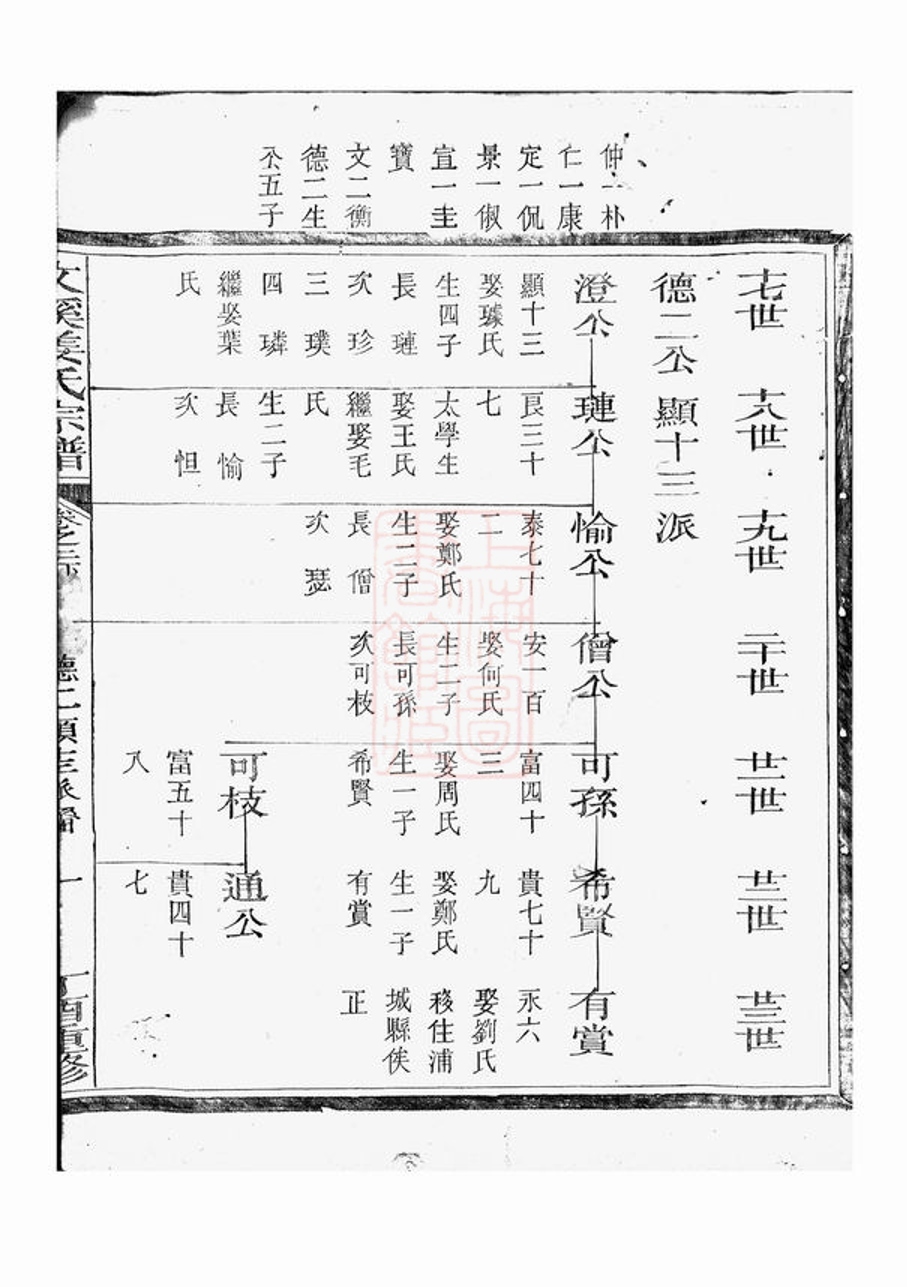 仲一朴
仁一康
定一侃
景一俶
宣一圭
寶
文二衡
德二生
公五子
十七世
十八世
十九世
二十世
廿一世
廿二世
廿三世
德二公顯十三派
澄公
顯十三
娶璩氏
生四子
長璉
次珍
三璞
四璘
繼娶葉
氏
璉公
良三十
七
太學生
娶王氏
繼娶毛
氏
生二子
長愉
次怛
愉公
泰七十
二
娶鄭氏
生二子
長僧
次瑟
僧公
安一百
娶何氏
生二子
長可孫
次可枝
可孫
富四十
三
娶周氏
生一子
希賢
可枝
富五十
八
希賢
貴七十
九
娶鄭氏
生一子
有賞
通公
貴四十
七
有賞
永六
娶劉氏
移住浦
城縣俟
正
文溪姜氏宗譜
卷之
德二顯十三派
一
丁酉重修
上海圖書館藏